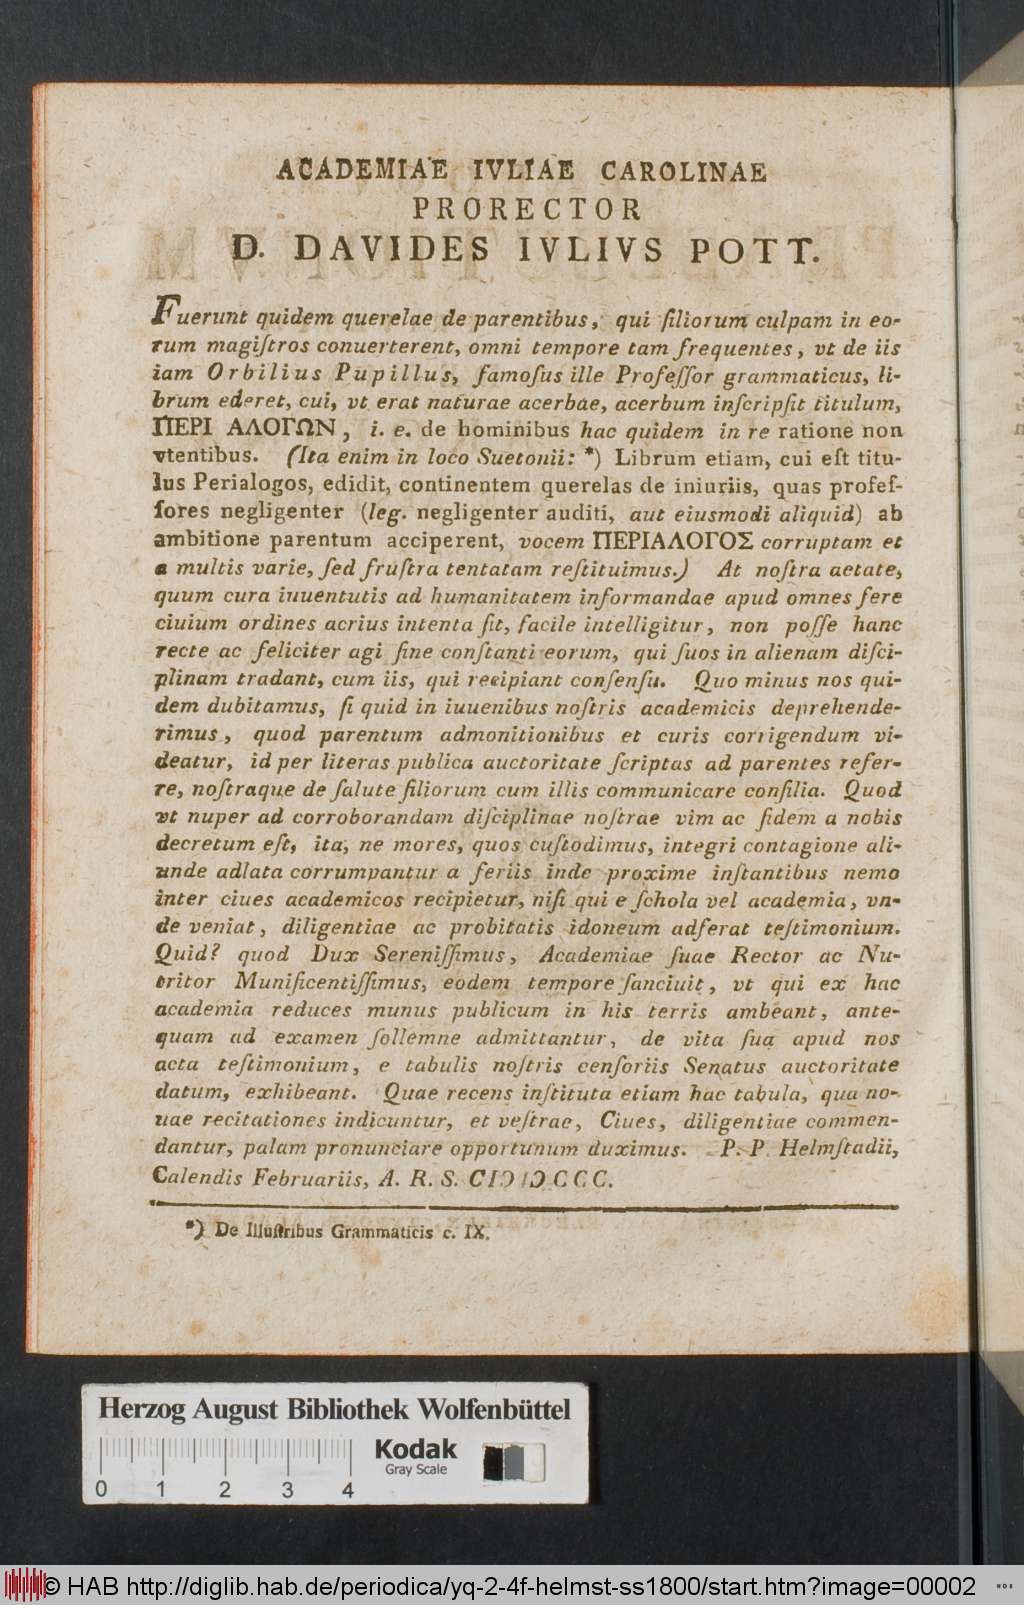 ACADEMIAE IVLIAE CAROLINAE
PRORECTOR
D. DAVIDES IVLIVS POTT.
Fuerunt quidem querelae de parentibus, qui filiorum culpam in eo-
rum magiſtros conuerterent, omni tempore tam frequentes, vt de iis
iam Orbilius Pupillus, famoſus ille Profeſſor grammaticus, li-
brum ederet, cui, vt erat naturae acerbae, acerbum inſcripſit titulum,
ΠΕΡΙ ΑΛΟΓΩΝ, i. e. de hominibus hac quidem in re ratione non
vtentibus. (Ita enim in loco Suetonii: *) Librum etiam, cui eſt titu-
lus Perialogos, edidit, continentem querelas de iniuriis, quas profeſ-
ſores negligenter (leg. negligenter auditi, aut eiusmodi aliquid) ab
ambitione parentum acciperent, vocem ΠΕΡΙΑΛΟΓΟΣ corruptam et
a multis varie, ſed fruſtra tentatam reſtituimus.) At noſtra aetate,
quum cura iuuentutis ad humanitatem informandae apud omnes fere
ciuium ordines acrius intenta ſit, facile intelligitur, non poſſe hanc
recte ac feliciter agi ſine conſtanti eorum, qui ſuos in alienam diſci-
plinam tradant, cum iis, qui recipiant conſenſu. Quo minus nos qui-
dem dubitamus, ſi quid in iuuenibus noſtris academicis deprehende-
rimus, quod parentum admonitionibus et curis corrigendum vi-
deatur, id per literas publica auctoritate ſcriptas ad parentes refer-
re, noſtraque de ſalute filiorum cum illis communicare conſilia. Quod
vt nuper ad corroborandam diſciplinae noſtrae vim ac fidem a nobis
decretum eſt, ita, ne mores, quos cuſtodimus, integri contagione ali-
unde adlata corrumpantur a feriis inde proxime inſtantibus nemo
inter ciues academicos recipietur, niſi qui e ſchola vel academia, vn-
de veniat, diligentiae ac probitatis idoneum adferat teſtimonium.
Quid? quod Dux Sereniſſimus, Academiae ſuae Rector ac Nu-
tritor Munificentiſſimus, eodem tempore ſanciuit, vt qui ex hac
academia reduces munus publicum in his terris ambeant, ante-
quam ad examen ſollemne admittantur, de vita ſua apud nos
acta teſtimonium, e tabulis noſtris cenſoriis Senatus auctoritate
datum, exhibeant. Quae recens inſtituta etiam hac tabula, qua no-
uae recitationes indicuntur, et veſtrae, Ciues, diligentiae commen-
dantur, palam pronunciare opportunum duximus. P. P. Helmſtadii,
Calendis Februariis, A. R. S. CIƆIƆCCC.
*) De Illuſtribus Grammaticis c. IX.
Herzog August Bibliothek Wolfenbüttel
Kodak
Gray Scale
0 1 2 3 4
© HAB http://diglib.hab.de/periodica/yq-2-4f-helmst-ss1800/start.htm?image=00002